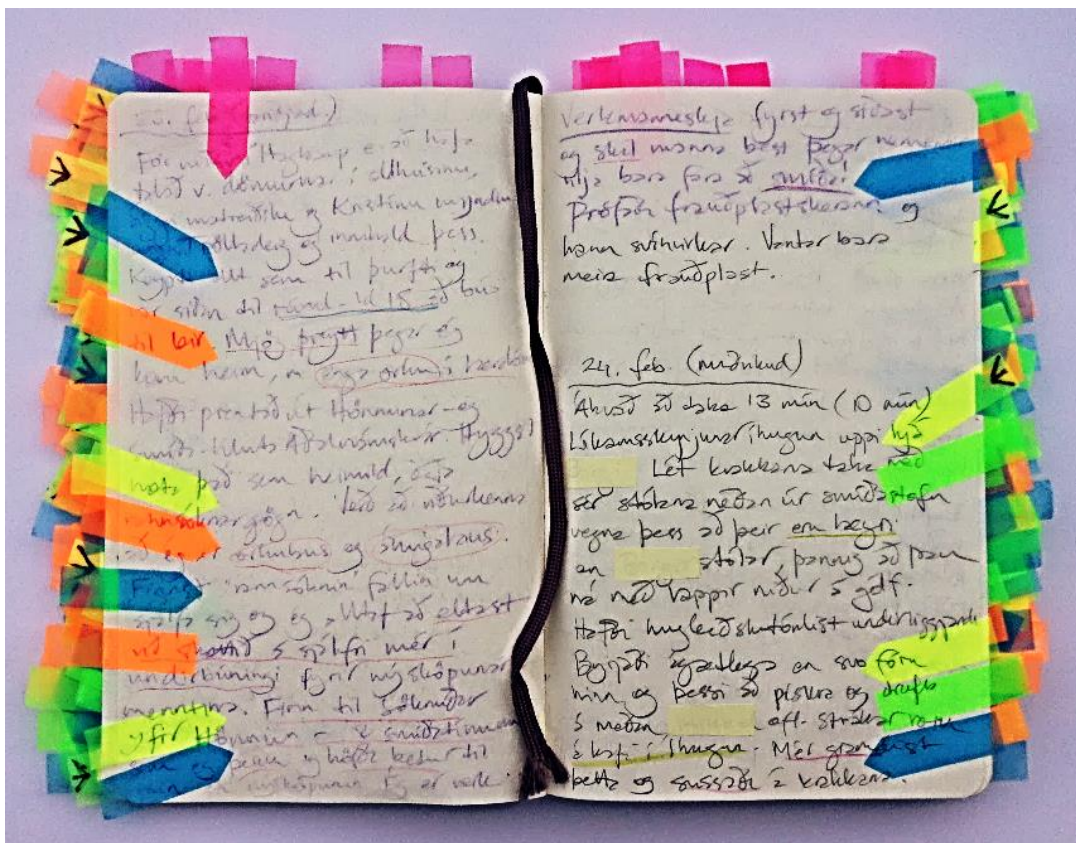 För
tilbað v. dömurnar í eldhúsinu,
matreiðslu og Kristínu
og innihald þess.
Keypti allt sem til þurfti og
síðan til rúml. kl 15 að búa
til þær. Mjög þreytt þegar ég
kom heim, m enga orku í
Hafði prentað út Hönnunar- og
smíði-hluta Aðalnámskrár. Hyggst
nota það sem heimild, eða
rannsóknargögn. Verð að viðurkenna
að ég er orkulaus og áhugalaus.
Finnst rannsóknin fallin um
sjálfa sig og ég alltaf að eltast
við skottið á sjálfri mér í
undirbúningi fyrir nýsköpunar
menntina. Finn til söknuðar
yfir Hönnun - & smíðatímum
sem ég þekki og höfðu betur til
Ég er verk
Verkmanneskja fyrst og síðast
og skil manna best þegar nemendur
vilja bara fara að smíða!
Prófaði frauðplastskerann og
hann svínvirkar. Vantar bara
meira frauðplast.
24. feb. (miðvikud)
Ákvað að taka 13 mín (10 mín)
Líkamsskynjunaríhugun uppi hjá
Lét krakkana taka með
sér stólana neðan úr smíðastofu
vegna þess að þeir eru lægri
en stólar, þannig að þau
ná með lappir niður á gólf.
Hafði hugleiðslutónlist undirliggjandi
Byrjaði ágætlega en svo fóru
og þessi að pískra og
á meðan Strákar voru
á kafi í íhugun. Mér gramdist
þetta og sussaði á krakkana.